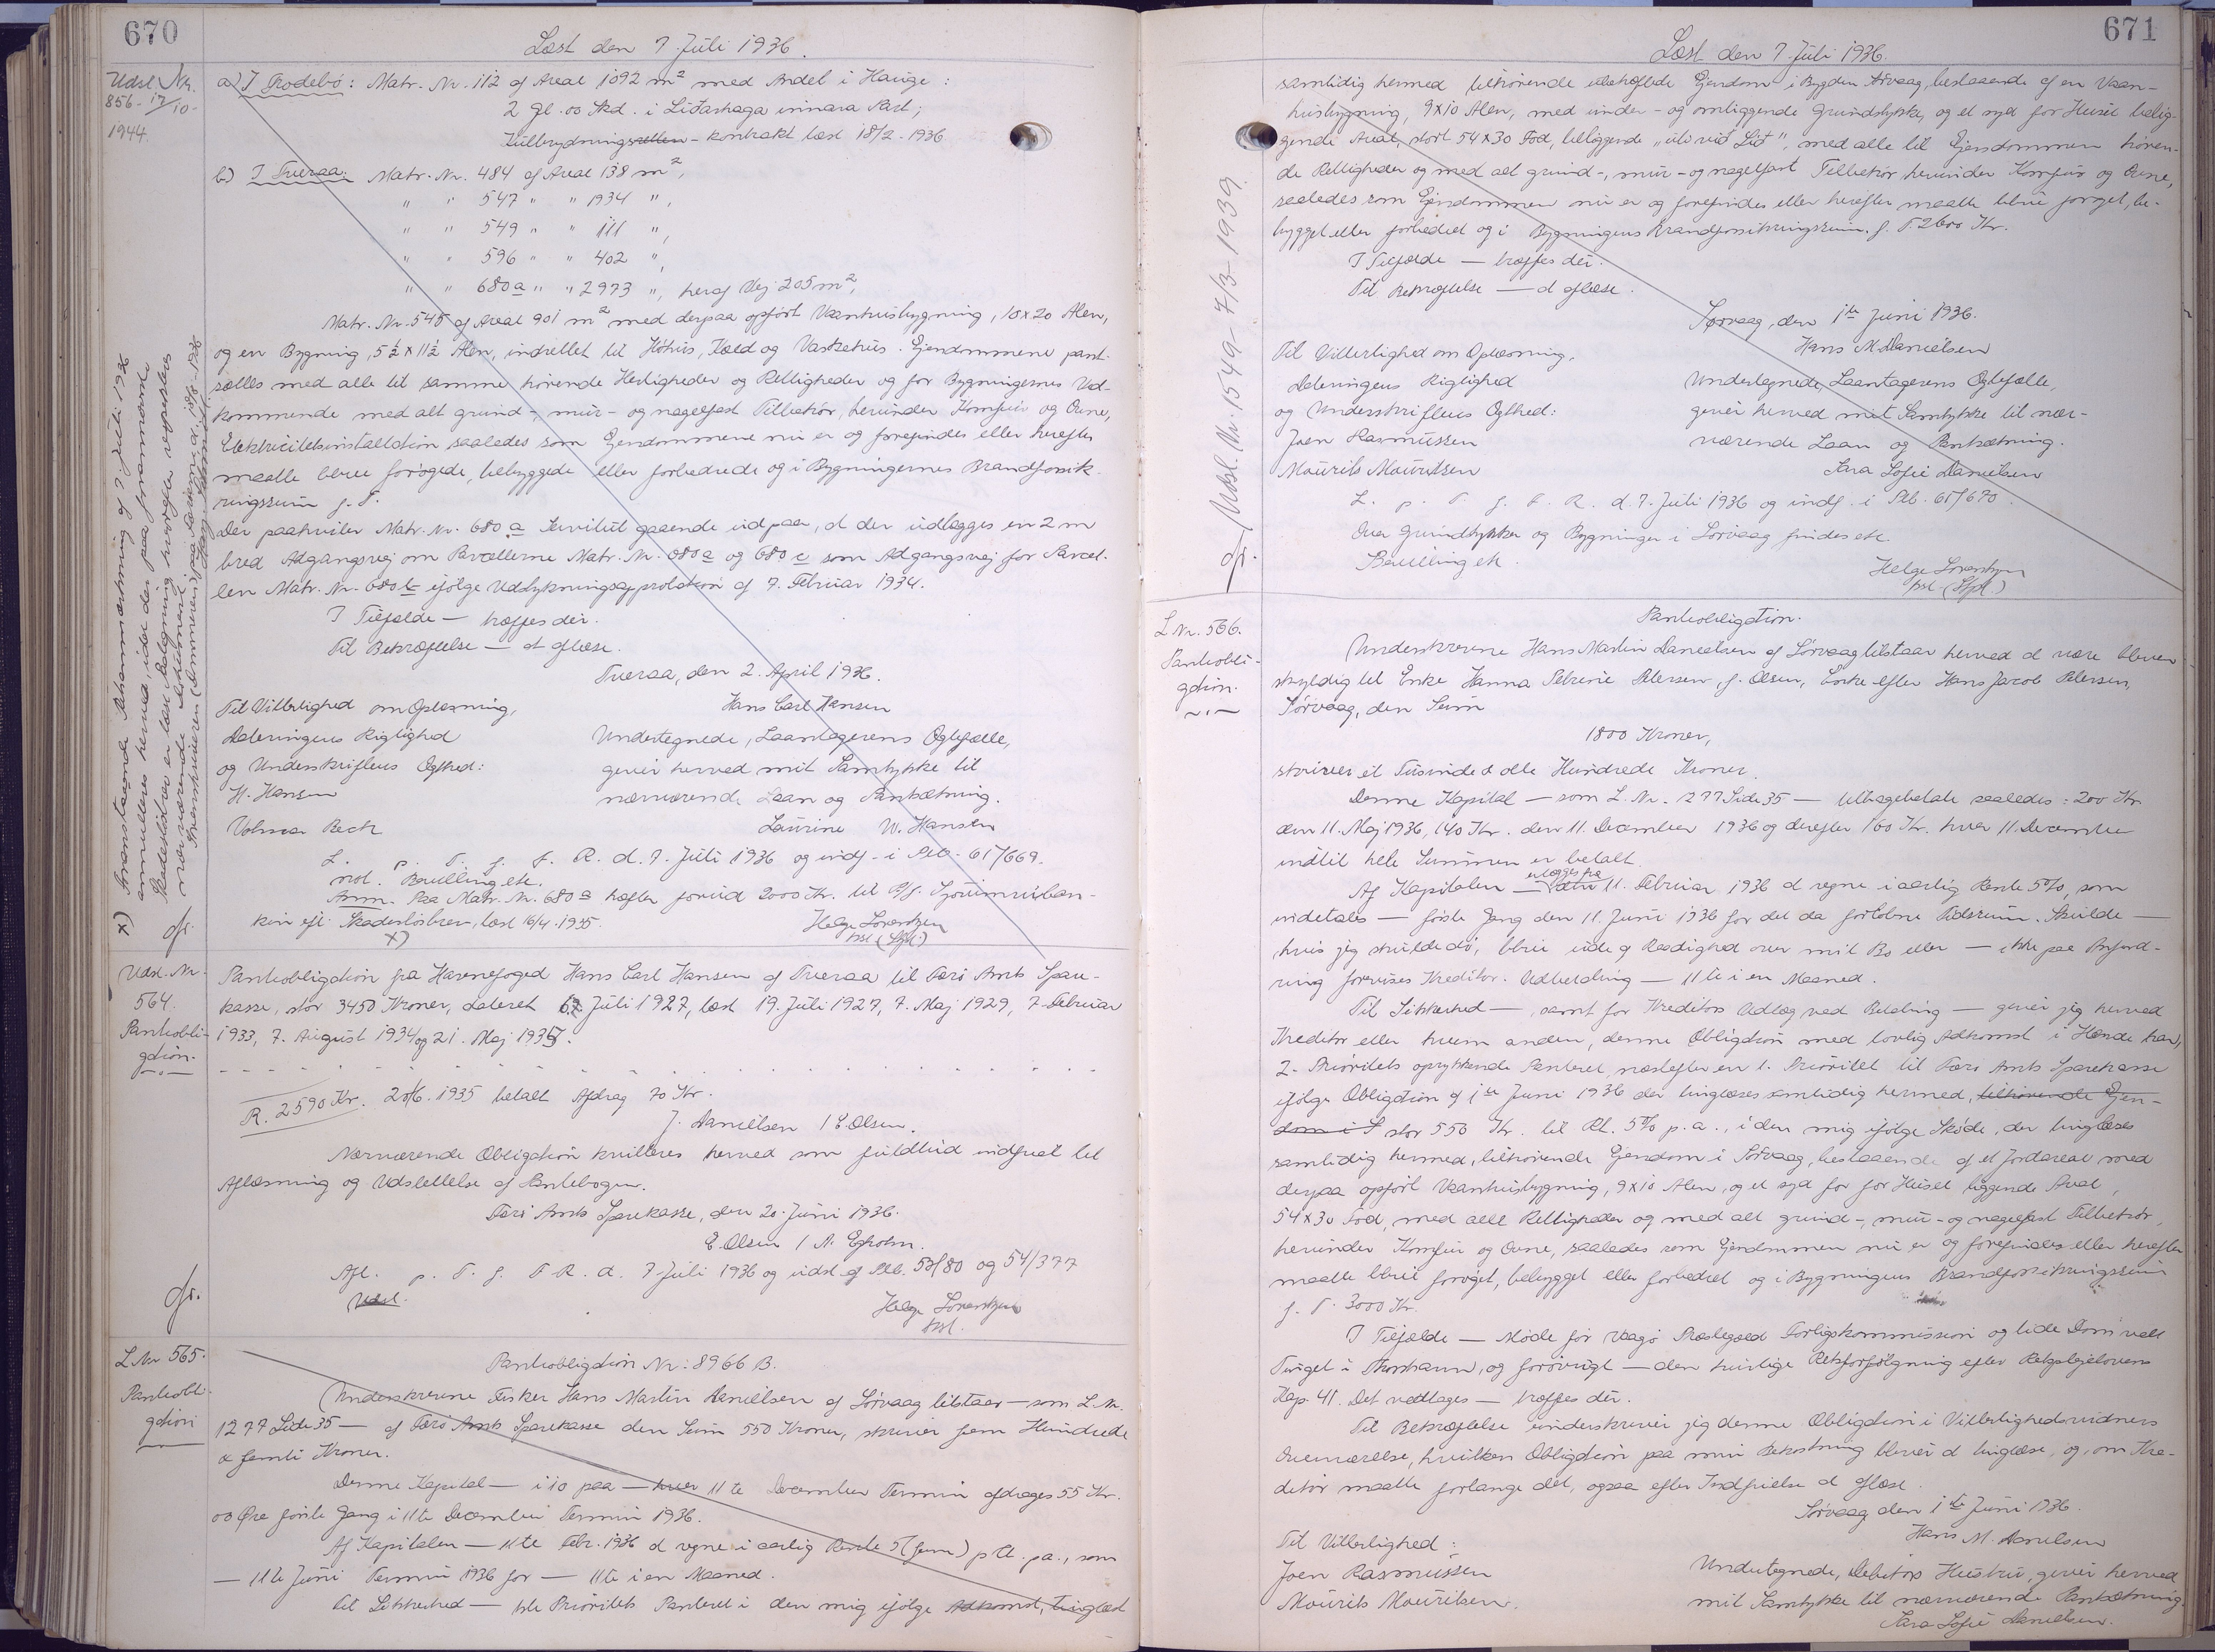 670
Læst den 7. Juli 1936.
Udsl. Nr.
856 - 17/10 -
1944.
a) I Trodebø: Matr. Nr. 112 af Areal 1092 m² med Andel i Hauge:
2 Gl. 00 Skd. i Liðarhaga innara Part;
Kulbrydningsretten - kontrakt læst 18/2 - 1936
b) I Tveraa: Matr. Nr. 484 af Areal 138 m²,
" " 547 " " 1934 ",
" " 549 " " 111 ",
" " 596 " " 402 ",
" " 680a " " 2973 ", heraf Vej 205 m²,
Matr. Nr. 545 af Areal 901 m² med derpaa opført Vaanhusbygning, 10 x 20 Alen,
og en Bygning, 5½ x 11½ Alen, indrettet til Høhus, Kostald og Vaskehus. Ejendommene pant-
sættes med alle til samme hørende Herligheder og Rettigheder og for Bygningernes Ved-
kommende med alt grund-, mur- og nagelfast Tilbehør, herunder Komfur og Ovne,
Elektricitetsinstallation saaledes som Ejendommene nu er og forefindes eller herefter
maatte blive forøgede, bebyggede eller forbedrede og i Bygningernes Brandforsik-
ringssum p. T.
Der paahviler Matr. Nr. 680 a Servitut gaaende ud paa, at der udlægges en 2 m
bred Adgangsvej om Parcellerne Matr. Nr. 680 a og 680 c som Adgangsvej for Parcel-
len Matr. Nr. 680 b ifølge Udstykningsapprobation af 7. Februar 1934.
I Tilfælde — træffes dér.
Til Bekræftelse — at aflæse.
Tveraa, den 2. April 1936.
Til Vitterlighed om Oplæsning,
Hans Carl Hansen
Dateringens Rigtighed
Undertegnede, Laantagerens Ægtefælle,
og Underskriftens Ægthed:
giver herved mit Samtykke til
H. Hansen
nærværende Laan og Pantsætning.
Volmer Bech
Laurine W. Hansen
L. p. T. f. F. R. d. 7. Juli 1936 og indf. i Ptb. 61/669.
not. Bevilling etc.
Anm. Paa Matr. Nr. 680 a hæfter forud 2000 Kr. til A/S. Sjóvinnubanl-
kin efl. Skadesløsbrev, læst 16/4. 1935.
x)
Helge Lorentzen
kst. (Sgfl.)
x) Foranstaaende Rethanmærkning af 7. Juli 1936
annulleres herved, idet der paa foranmeldte
Skadesløsbrev er læst Paategning hvorefter respekteres
nærværende Dokument.
gr.
Udsl. Nr.
564.
Pantobli-
gation.
Pantobligation fra Havnefoged Hans Carl Hansen af Tveraa til Færø Amts Spare-
kasse, stor 3450 Kroner, dateret 12 Juli 1927, læst 19. Juli 1927, 7. Maj 1929, 7. Februar
1933, 7. August 1934 og 21. Maj 1935.
R. 2590 Kr. 28/6. 1935 betalt Afdrag 70 Kr.
J. Danielsen / E. Olsen.
Nærværende Obligation kvitteres herved som fuldtud indfriet til
Aflæsning og Udslettelse af Pantebogen.
Færø Amts Sparekasse, den 20. Juni 1936.
E. Olsen / N. Egholm.
Afl. p. T. f. F. R. d. 7. Juli 1936 og udsl. af Ptb. 53/80 og 54/377
Udsl.
Helge Lorentzen
kst.
gr.
L Nr. 565.
Pantobli-
gation
Pantobligation Nr: 8966 B.
Underskrevne Fisker Hans Martin Danielsen af Sørvaag tilstaar — som L. Nr.
1277 Side 35 — af Færø Amts Sparekasse den Sum 550 Kroner, skriver fem Hundrede
& femti Kroner.
Denne Kapital — i 10 paa — hver 11 te December Termin afdrages 55 Kr.
00 Øre første Gang i 11te December Termin 1936.
Af Kapitalen — 11te Febr. 1936 at regne i aarlig Rente 5 (fem) p Ct. pa., som
— 11te Juni Termin 1936 for — 11te i en Maaned.
Til Sikkerhed — 1ste Prioritets Panteret i den mig ifølge Adkomst, tinglæst
671
Læst den 7. Juli 1936.
samtidig hermed tilhørende ubehæftede Ejendom i Bygden Sørvaag, bestaaende af en Vaan-
husbygning, 9x10 Alen, med under- og omliggende Grundstykke, og et syd for Huset belig-
gende Areal, stort 54 x 30 Fod, beliggende „uti við Lið", med alle til Ejendommen høren-
de Rettigheder og med alt grund-, mur- og nagelfast Tilbehør, herunder Komfur og Ovne,
saaledes som Ejendommen nu er og forefindes eller herefter maatte blive forøget, be-
bygget eller forbedret og i Bygningens Brandforsikringssum p. T 2600 Kr.
I Tilfælde — træffes dér.
Til Bekræftelse — at aflæse.
Sørvaag, den 1ste Juni 1936.
Til Vitterlighed om Oplæsning,
Hans M. Danielsen
Dateringens Rigtighed
Undertegnede, Laantagerens Ægtefælle,
og Underskriftens Ægthed:
giver herved mit Samtykke til nær-
Joen Rasmussen
værende Laan og Pantsætning.
Mourits Mouritsen
Sara Sofie Danielsen
L. p. T. f. F. R. d. 7. Juli 1936 og indf. i Ptb. 61/670.
Over Grundstykker og Bygninger i Sørvaag findes etc.
Bevilling etc.
Helge Lorentzen
kst. (Sgfl.)
Udsl. Nr. 1549 - 7/3 - 1939.
gr.
L Nr. 566.
Pantobli-
gation.
Pantobligation.
Underskrevne Hans Martin Danielsen af Sørvaag tilstaar herved at være bleven
skyldig til Enke Hanna Petrine Petersen, f. Olsen, Enke efter Hans Jacob Petersen,
Sørvaag, den Sum
1800 Kroner,
skriver et Tusinde & otte Hundrede Kroner.
Denne Kapital — som L. Nr. 277 Side 35 — tilbagebetale saaledes: 200 Kr.
den 11. Maj 1936, 140 Kr. den 11. December 1936 og derefter 160 Kr. hver 11. December
indtil hele Summen er betalt.
Af Kapitalen — den 11. Februar 1936 at regne i aarlig Rente 5%, som
indetales — første Gang den 11. Juni 1936 for det da forløbne Tidsrum. Skulde —
hvis jeg skulde dø, blive ude af Raadighed over mit Bo eller — ikke paa Anford-
ring forevises Kreditor. Udbetaling — 11te i en Maaned.
Til Sikkerhed —, samt for Kreditors Udlæg ved Betaling — giver jeg herved
Kreditor eller hvem anden, denne Obligation med lovlig Adkomst i Hænde har,
2. Prioritets oprykkende Panteret næstefter en 1. Prioritet til Færø Amts Sparekasse
ifølge Obligation af 1ste Juni 1936 der tinglæses samtidig hermed, tilhørende Ejen-
dom i S stor 550 Kr. til Rt. 5% p. a., i den mig ifølge Skøde, der tinglæses
samtidig hermed, tilhørende Ejendom i Sørvaag, bestaaende af et Jordareal med
derpaa opført Vaanhusbygning, 9x10 Alen, og et syd for for Huset liggende Areal,
54 x 30 Fod, med alle Rettigheder og med alt grund-, mur- og nagelfast Tilbehør,
herunder Komfur og Ovne, saaledes som Ejendommen nu er og forefindes eller herefter
maatte blive forøget, bebygget eller forbedret og i Bygningens Brandforsikringssum
p. T. 3000 Kr.
I Tilfælde — Møde for Vaagø Præstegæld Forligskommission og lide Dom ved
Tinget i Thorshavn, og forøvrigt — den hurtige Retsforfølgning efter Retsplejelovens
Kap. 41. Det vedtages — træffes dér.
Til Bekræftelse underskriver jeg denne Obligation i Vitterlighedsvidners
Overværelse, hvilken Obligation paa min Bekostning bliver at tinglæse, og, om Kre-
ditor maatte forlange det, ogsaa efter Indfrielse at aflæse.
Sørvaag den 1ste Juni 1936.
Til Vitterlighed:
Hans M. Danielsen
Joen Rasmussen
Undertegnede, Debitors Hustru, giver herved
Mourits Mouritsen.
mit Samtykke til nærværende Pantsætning.
Sara Sofie Danielsen.